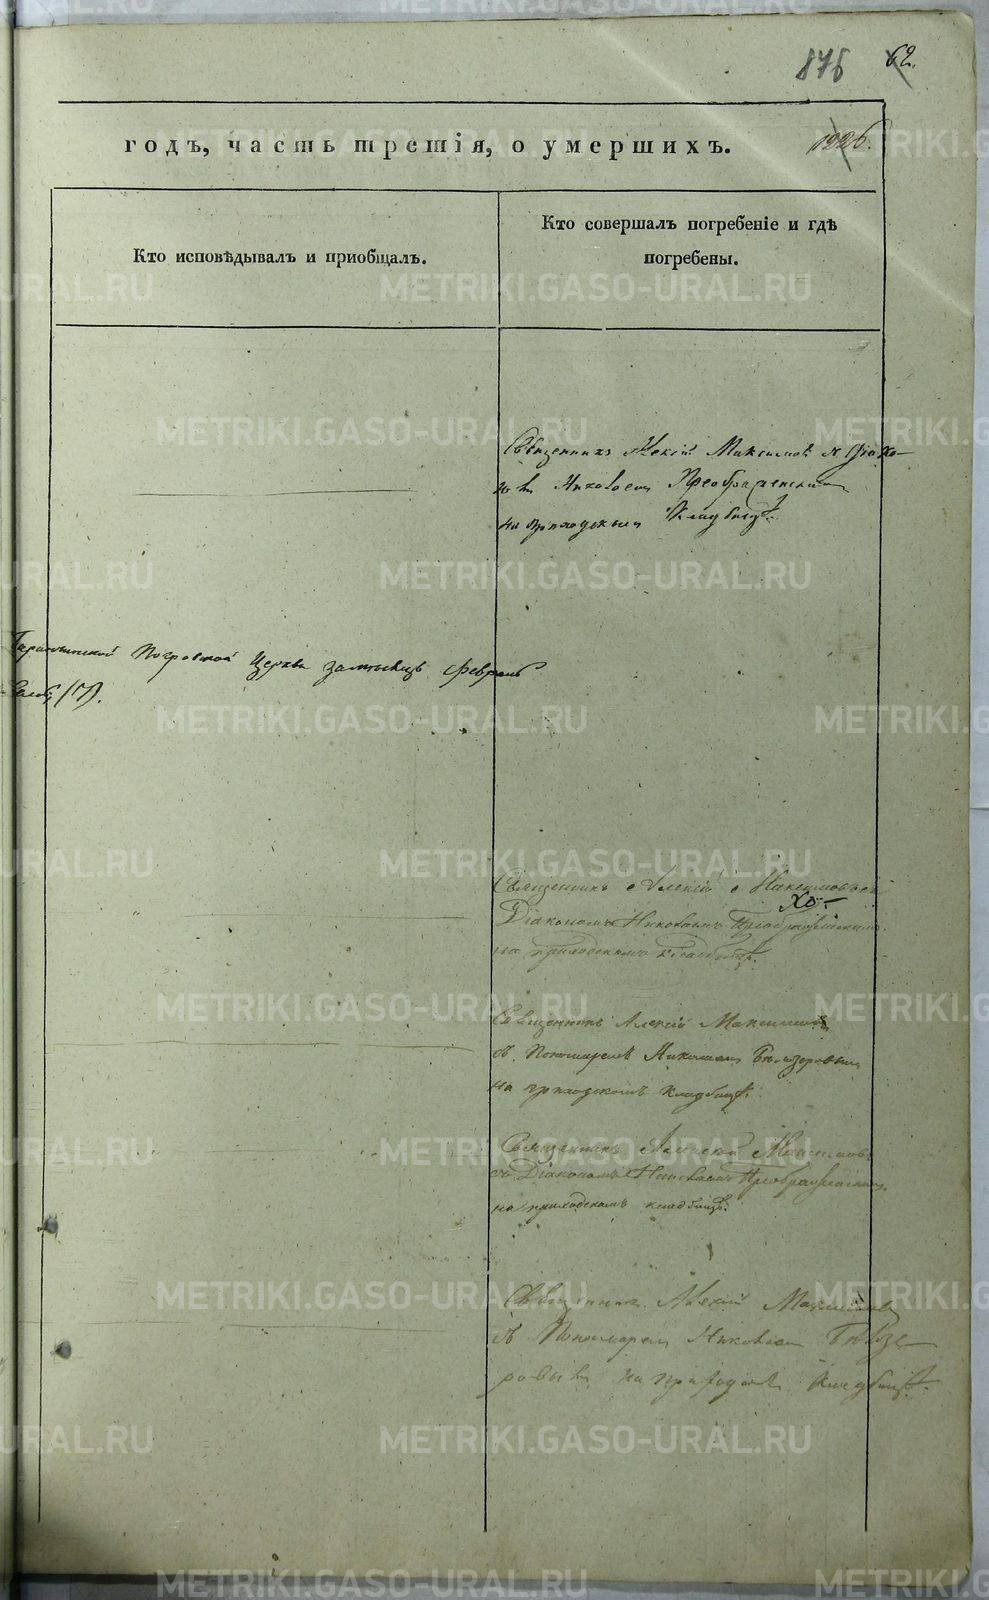 876 62.
годъ, часть третія, о умершихъ. 1226.
Кто исповѣдывалъ и приобщалъ.
Кто совершалъ погребеніе и гдѣ
погребены.
Священникъ Алексій Максимовъ с Діако-
номъ Николаемъ Преображенскимъ
на приходскомъ Кладбищѣ.
Покровской Церкви Февраль
(17).
Священникъ Алексій Максимовъ с
Діакономъ Николаемъ Преображенскимъ
на приходскомъ кладбищѣ.
Священникъ Алексій Максимовъ
съ Пономаремъ Николаемъ Бѣлозеровымъ
на приходскомъ кладбищѣ.
Священникъ Алексій Максимовъ
съ Діакономъ Николаемъ Преображенскимъ
на приходскомъ кладбищѣ.
Священникъ Алексій Максимовъ
съ Пономаремъ Николаемъ Бѣлозе
ровымъ на приходскомъ Кладбищѣ.
METRIKI.GASO-URAL.RU